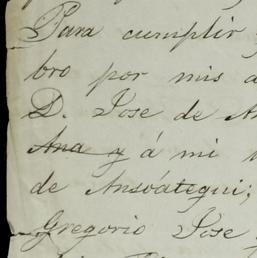 Para cumplir
bro por mis
D. Jose de An
Ana y á mi
de Ansoátegui;
Gregorio Jose